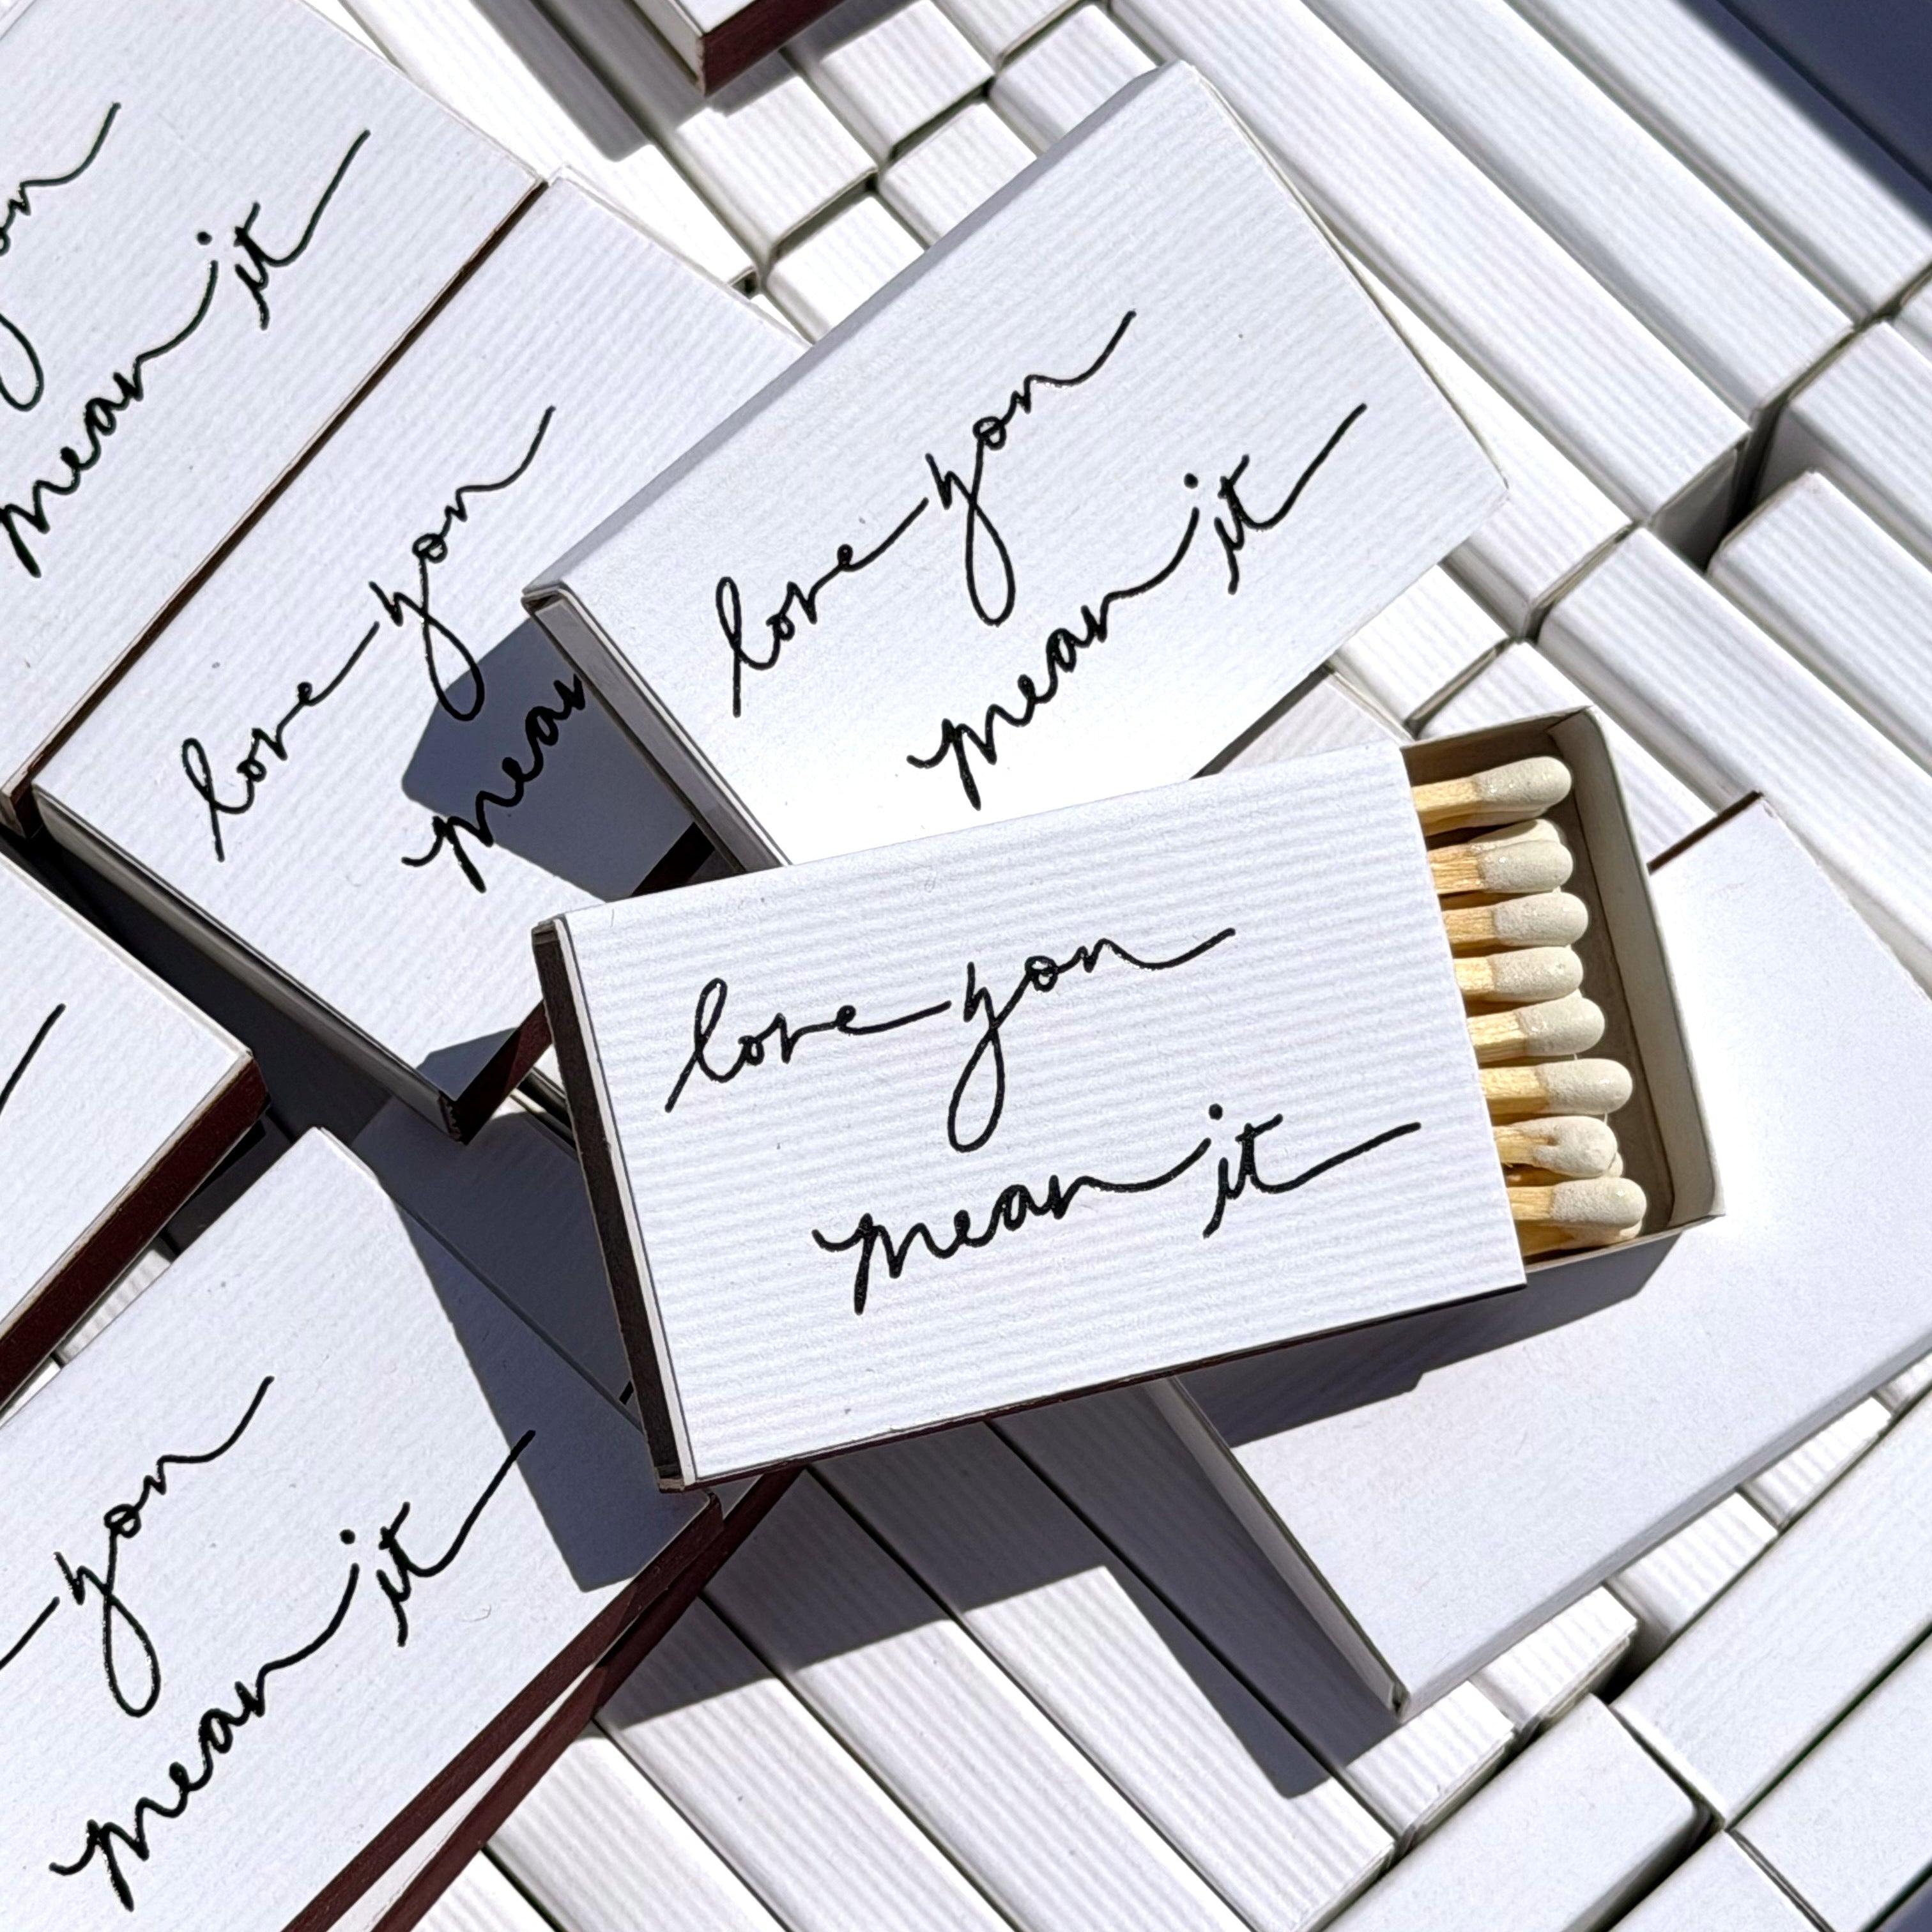 you
mean it
love you
mean
love you
mean it
love you
mean it
you
mean it